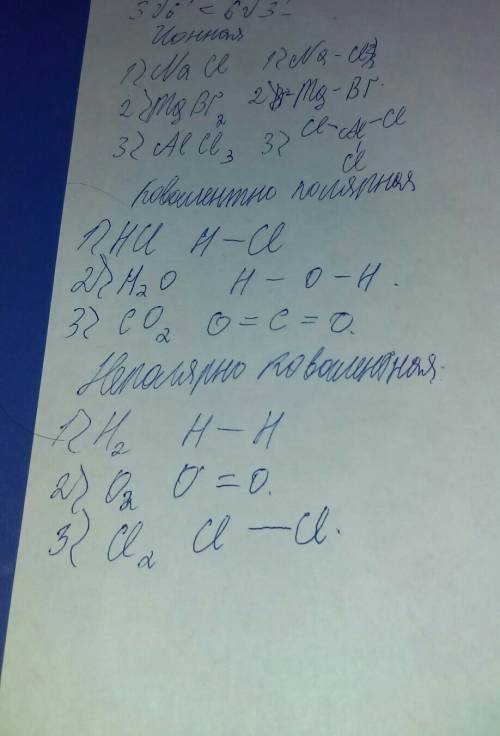 3√6 < 6√3
Ионная
1) NaCl 1) Na-Cl
2) MgBr2 2) Mg-Br.
3) AlCl3 3) Cl-Al-Cl
Cl
Ковалентно полярная
1) HCl H-Cl
2) H2O H-O-H.
3) CO2 O=C=O.
Неполярно ковалентная.
1) H2 H-H
2) O2 O=O.
3) Cl2 Cl-Cl.